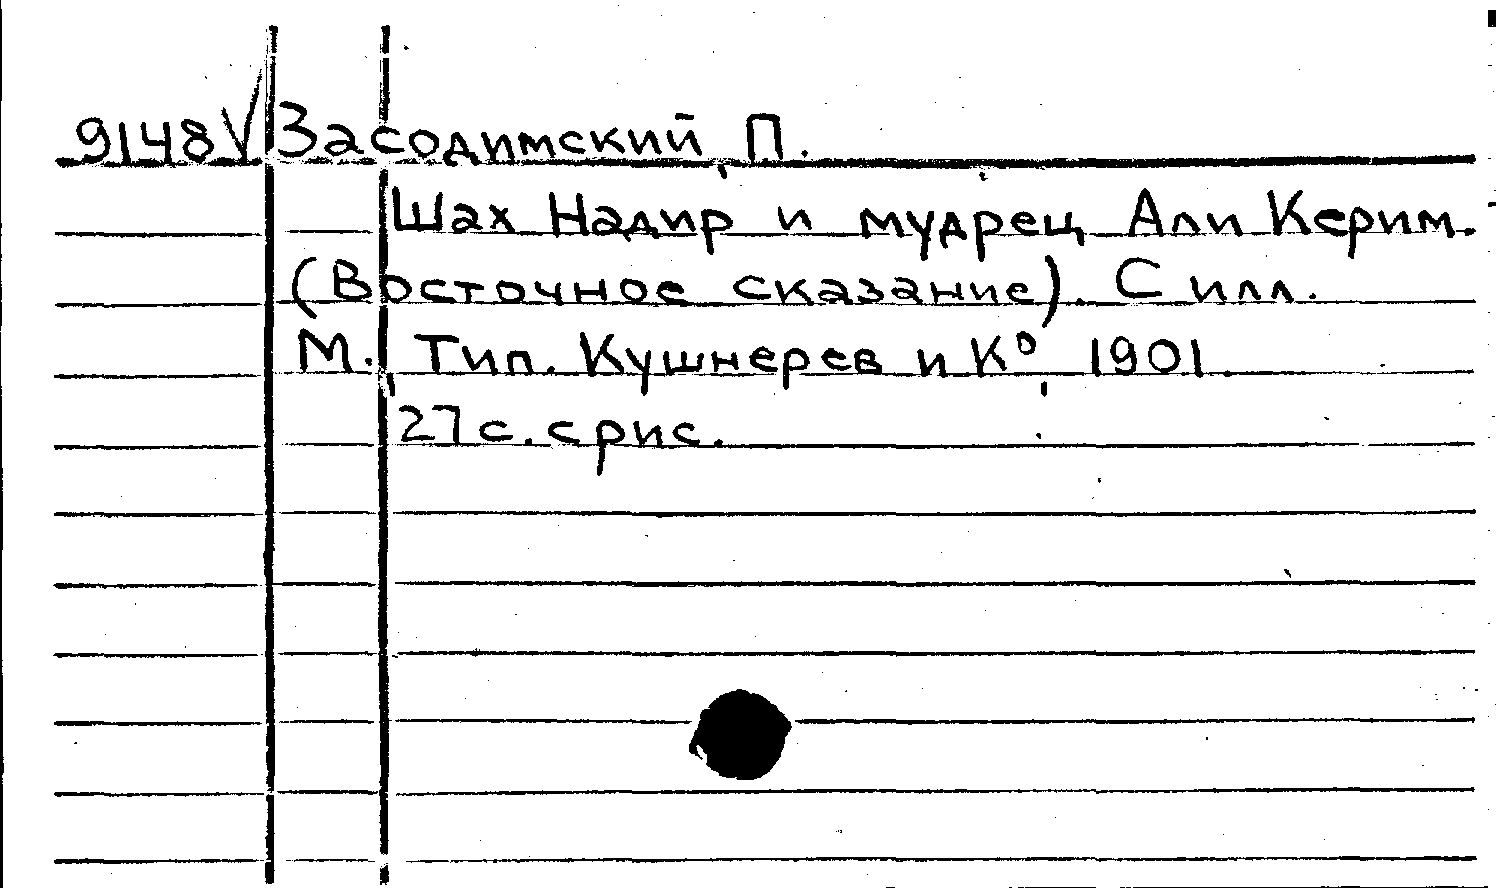 9148 V Засодимский, П.
Шах Надир и мудрец Али Керим.
(Восточное сказание). С илл.
М., Тип. Кушнерев и К°, 1901.
27 с. с рис.